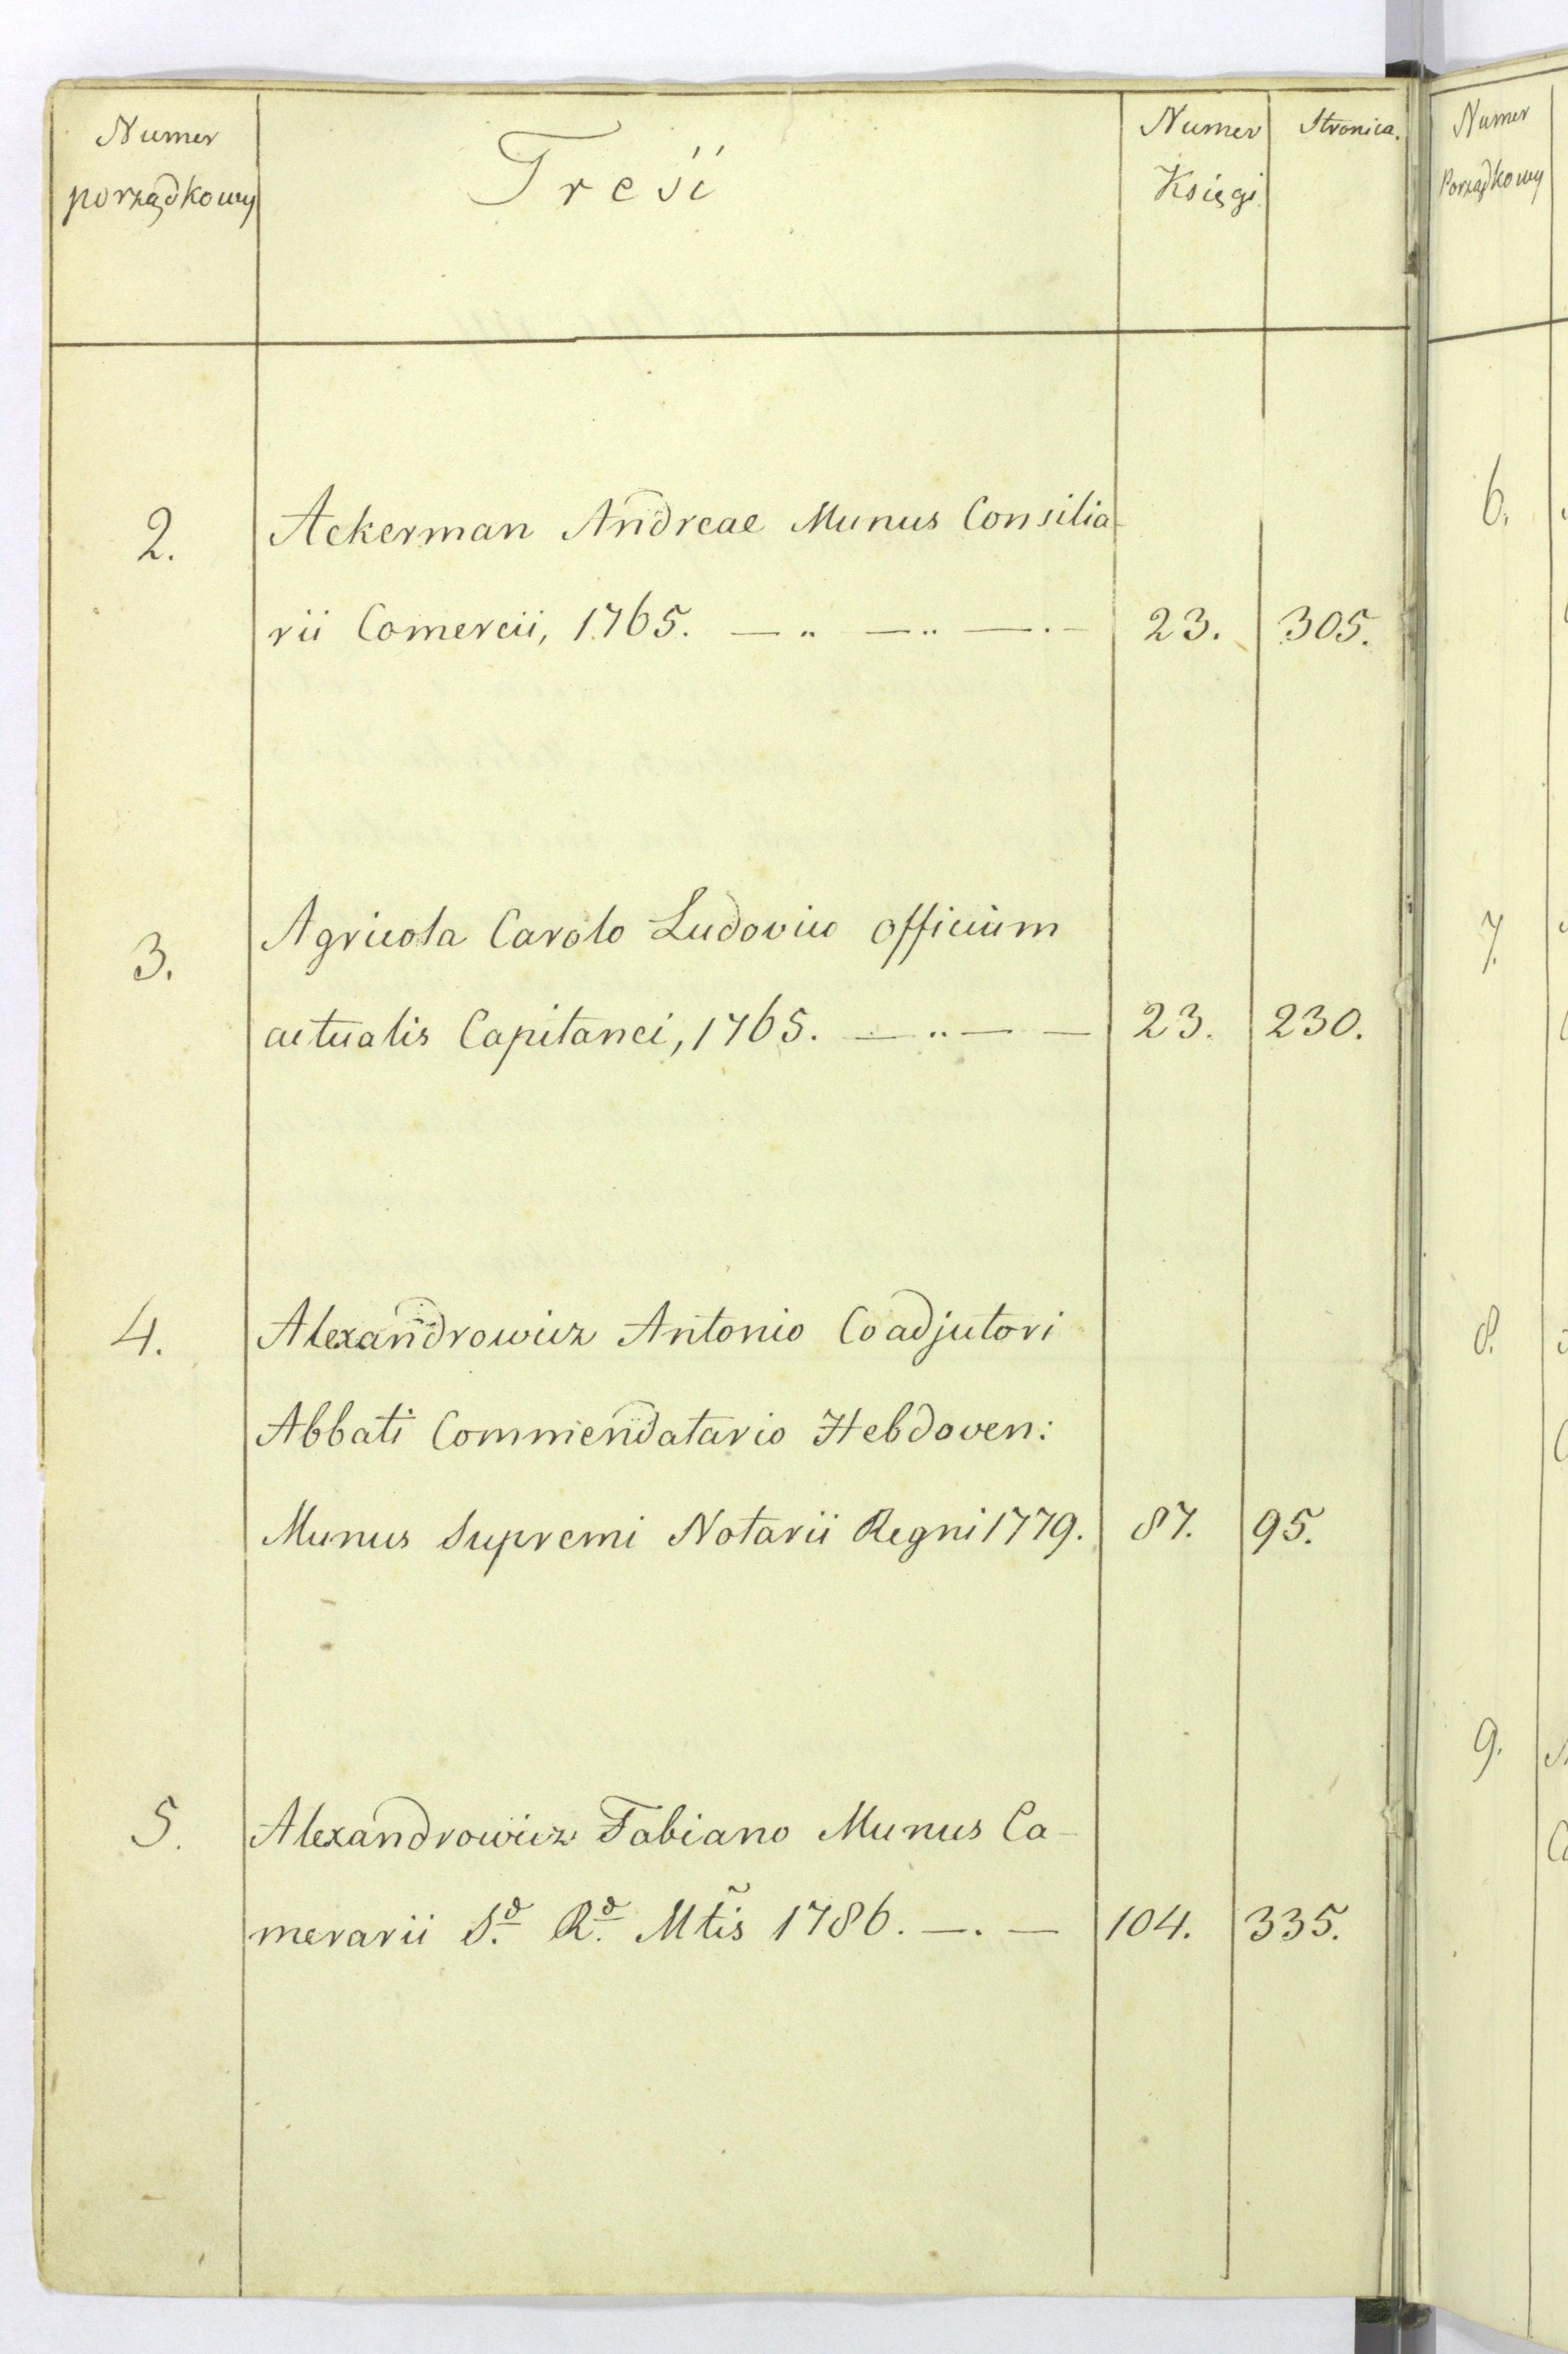 Numer porządkowy
Treść
Numer Księgi
Stronica.
2.
Ackerman Andreae Munus Consilia-
rii Comercii, 1765. — „ — „ — . — 23. 305.
3.
Agricola Carolo Ludovico officium
actualis Capitanei, 1765. — „ — — 23. 230.
4.
Alexandrowicz Antonio Coadjutori
Abbati Commendatario Hebdoven:
Munus Supremi Notarii Regni 1779. 87. 95.
5.
Alexandrowicz Fabiano Munus Ca-
merarii S.ᵃ R.ᵃ Mt̃is 1786. — . — 104. 335.
Numer
Porządkowy
6.
7.
8.
9.